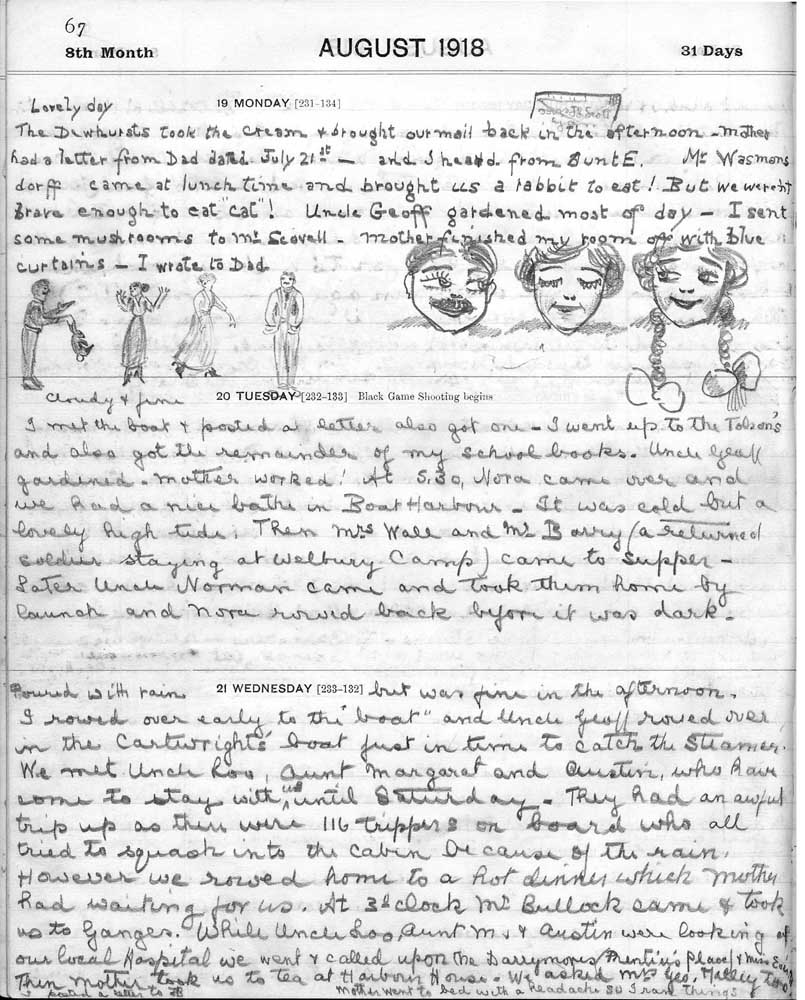 67
8th Month
AUGUST 1918
31 Days
Lovely day
19 MONDAY [231-134]
The Dewhursts took the cream & brought our mail back in the afternoon - Mother
had a letter from Dad dated July 21st - and I heard from Aunt E. Mr Wasmons
dorff came at lunch time and brought us a rabbit to eat! But we weren't
brave enough to eat "cat"! Uncle Geoff gardened most of day - I sent
some mushrooms to Mr Scovell - Mother finished my room off with blue
curtains - I wrote to Dad.
Cloudy & fine
20 TUESDAY [232-133] Black Game Shooting begins
I met the boat & posted a letter also got one - I went up to the Tolson's
and also got the remainder of my school books. Uncle Geoff
gardened - Mother worked! At 5.30, Nora came over and
we had a nice bathe in Boat Harbour - It was cold but a
lovely high tide. Then Mrs Wall and Mr Barry (a returned
soldier staying at Welbury Camp) came to supper -
Later Uncle Norman came and took them home by
launch and Nora rowed back before it was dark -
Poured with rain
21 WEDNESDAY [233-132]
but was fine in the afternoon.
I rowed over early to the "boat" and Uncle Geoff rowed over
in the Cartwrights' boat just in time to catch the Steamer.
We met Uncle Loo, Aunt Margaret and Austin, who have
come to stay with us until Saturday - They had an awful
trip up as there were 116 trippers on board who all
tried to squash into the cabin because of the rain.
However we rowed home to a hot dinner which Mother
had waiting for us. At 3 o'clock Mr Bullock came & took
us to Ganges. While Uncle Loo, Aunt M. & Austin were looking at
our local Hospital we went & called upon the Barrymores Place) & Miss
Then Mother took us to tea at Harbour House - We asked Mrs Geo.
I posted a letter to
Mother went to bed with a headache so I ran things